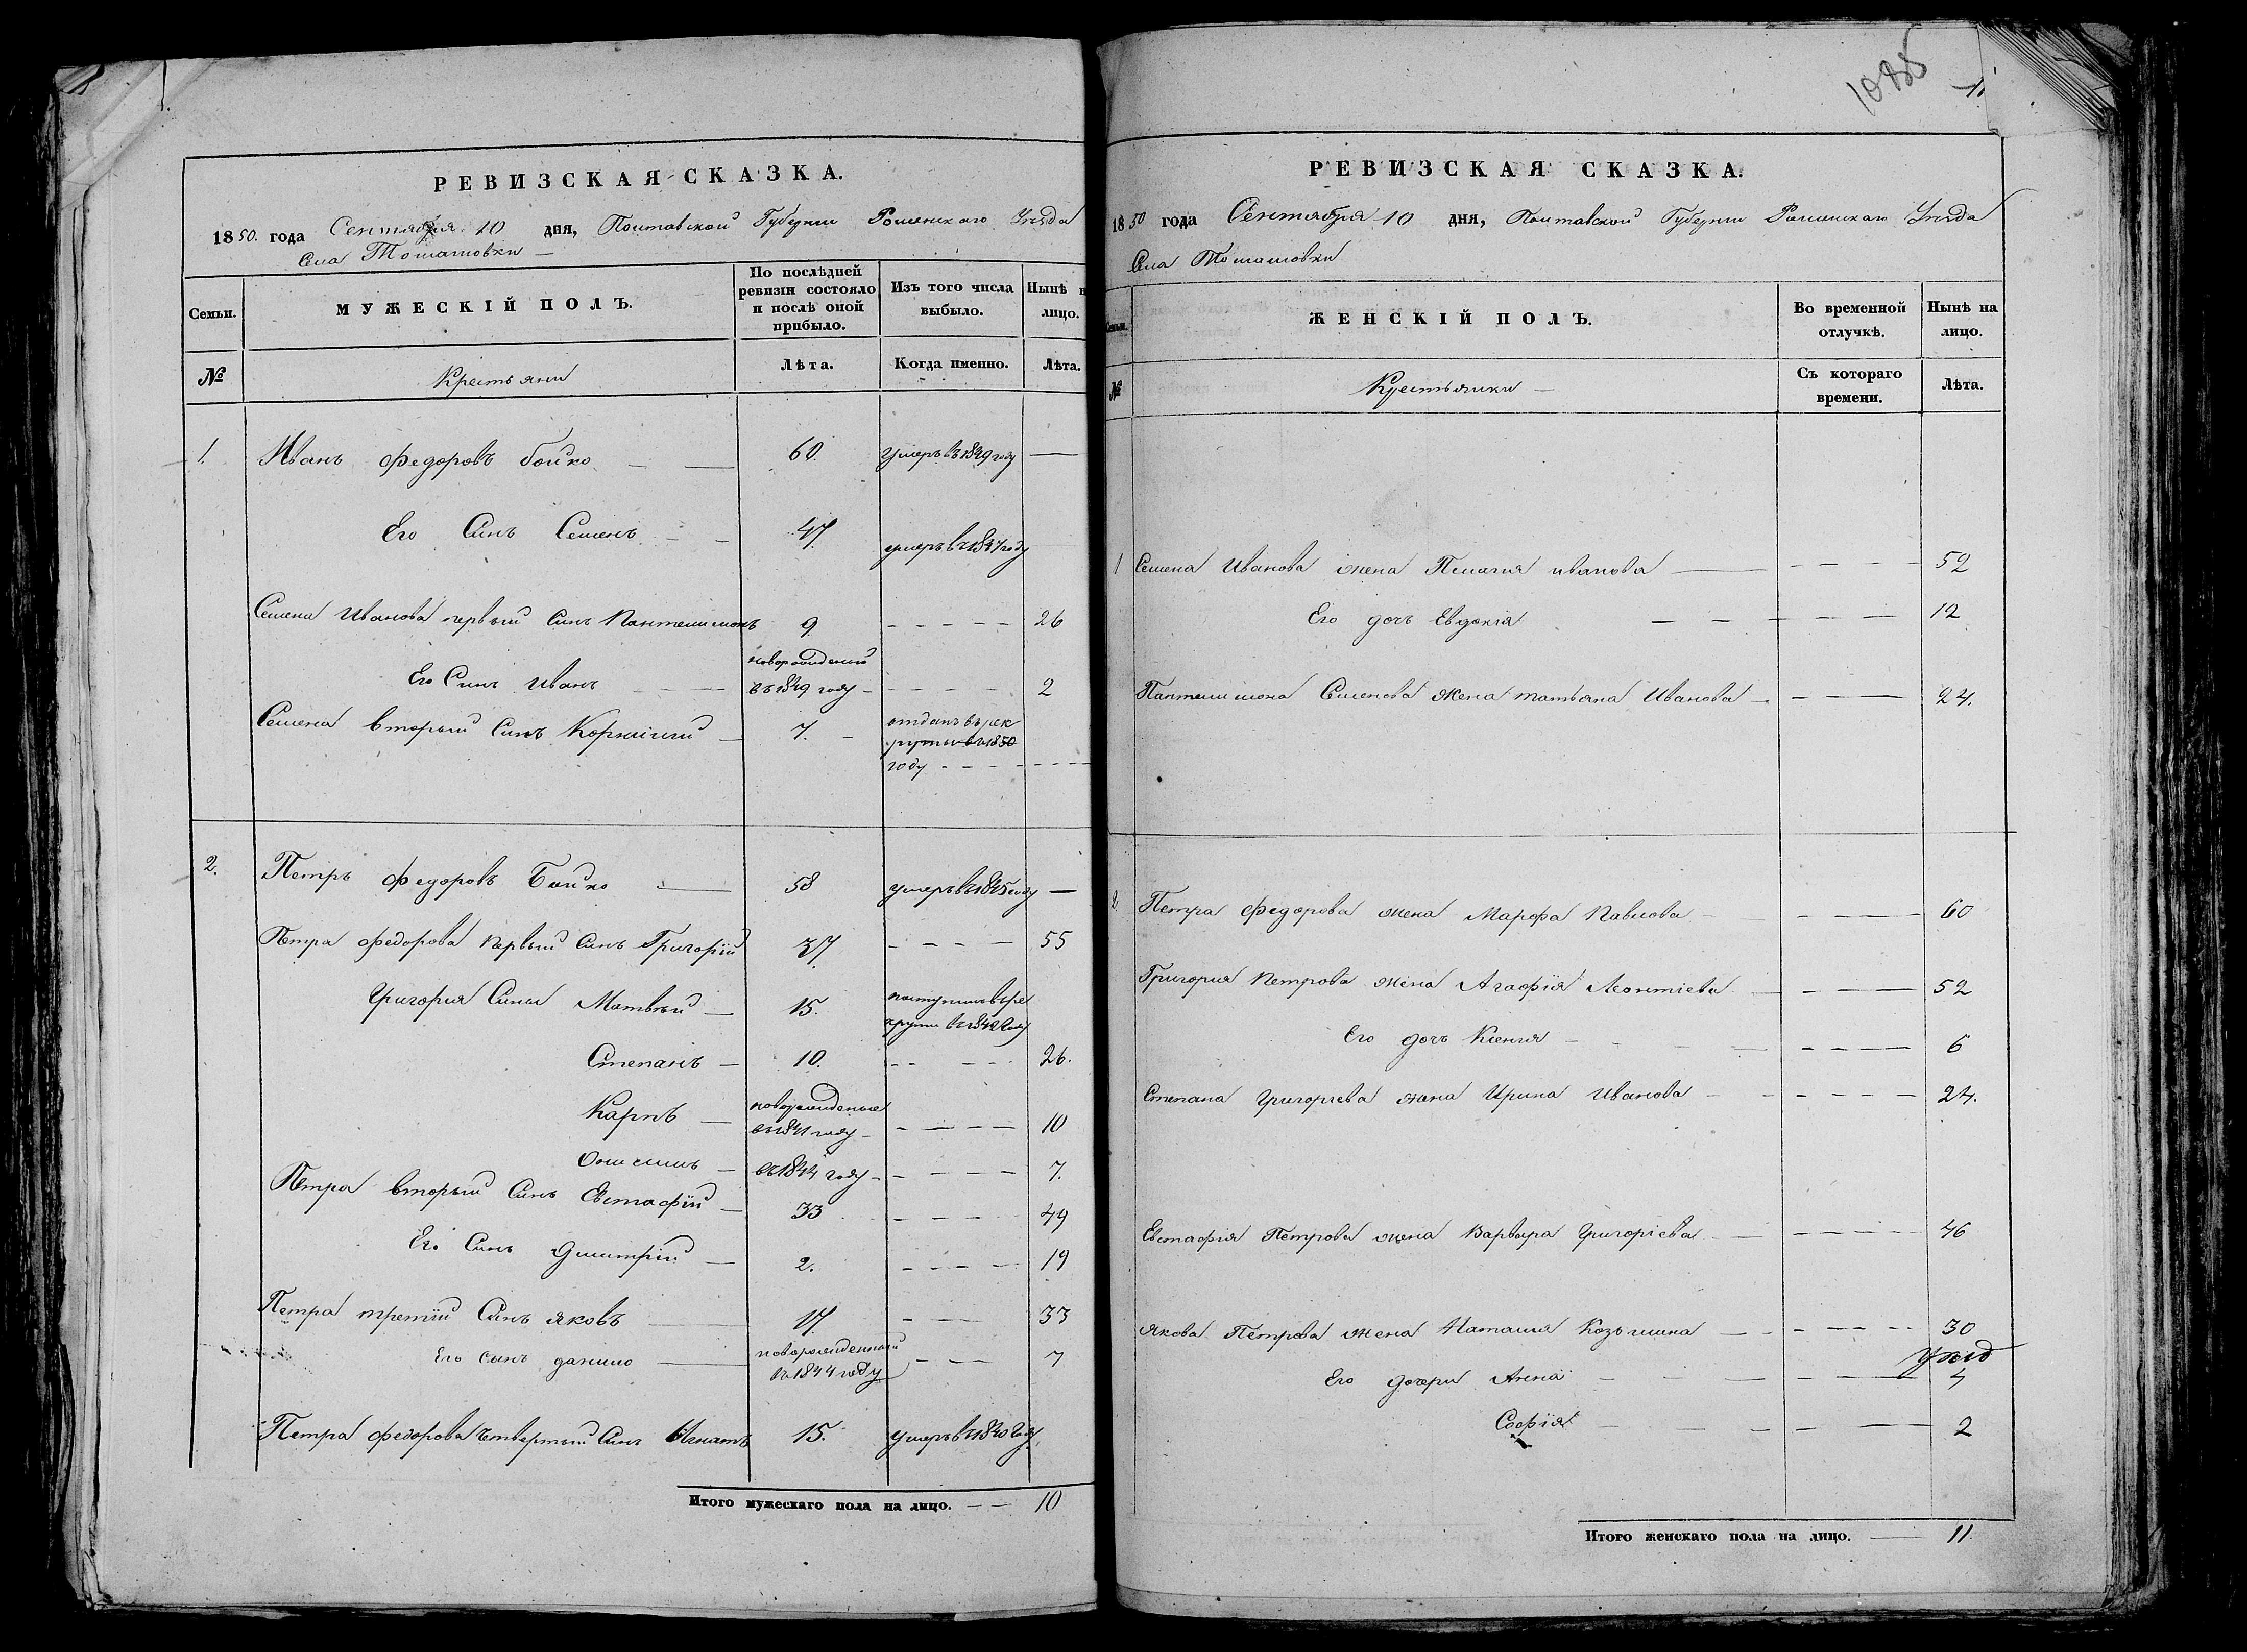 РЕВИЗСКАЯ СКАЗКА.
1850. года Сентября 10 дня, Полтавской Губернии Роменскаго Уезда
Села Томашовки
Семьи.
МУЖЕСКІЙ ПОЛЪ.
По послѣдней ревизіи состояло и послѣ оной прибыло.
Изъ того числа выбыло.
Нынѣ н лицо.
№
Крестьяни
Лѣта.
Когда именно.
Лѣта.
1. Иванъ Федоровъ бойко 60 умеръ въ 1849 году
Его Синъ Семенъ 47 умеръ въ 1847 году
Семена Иванова первый Синъ Пантелимонъ 9 26
Его Синъ Иванъ новорожденый въ 1849 году 2
Семена вторый Синъ Корнилий 7. отданъ въ рек
руты въ 1850
году
2. Петръ Федоровъ Бойко 58 умеръ въ 1845 году
Петра Федорова первый Синъ Григорій 37 55
Григория Сины Матвѣй 15. поступилъ въ ре
круты въ 1842 году
Степанъ 10. 26.
Карпъ новорожденые въ 1841 году 10
въ 1844 году 7.
Петра вторый Синъ Евстафій 33 49
Его Синъ Дмитрій 2. 19
Петра третий Синъ яковъ 17 33
Его сынъ данило новорожденный въ 1844 году 7
Петра федорова четвертый Синъ Игнатъ 15. умеръ въ 1840 году
Итого мужескаго пола на лицо. 10
1085
РЕВИЗСКАЯ СКАЗКА.
1850 года Сентября 10 дня, Полтавской Губернии Роменскаго Уезда
Села Томашовки
Семьи.
ЖЕНСКІЙ ПОЛЪ.
Во временной отлучкѣ.
Нынѣ на лицо.
№
Крестьянки
Съ котораго времени.
Лѣта.
1 Семена Иванова жена Пелагия иванова 52
Его дочъ Евдокія 12
Пантелимона Семенова жена татьяна Иванова 24.
2 Петра Федорова жена Марфа Павлова 60
Григория Петрова жена Агафія Леонтіева 52
Его дочъ Ксения 6
Степана Григоріева жена Ирина Иванова 24.
Евстафія Петрова жена Варвара Григоріева 46
Якова Петрова жена Наталия Козьмина 30
Его дочери Анна
Софія 2
Итого женскаго пола на лицо. 11